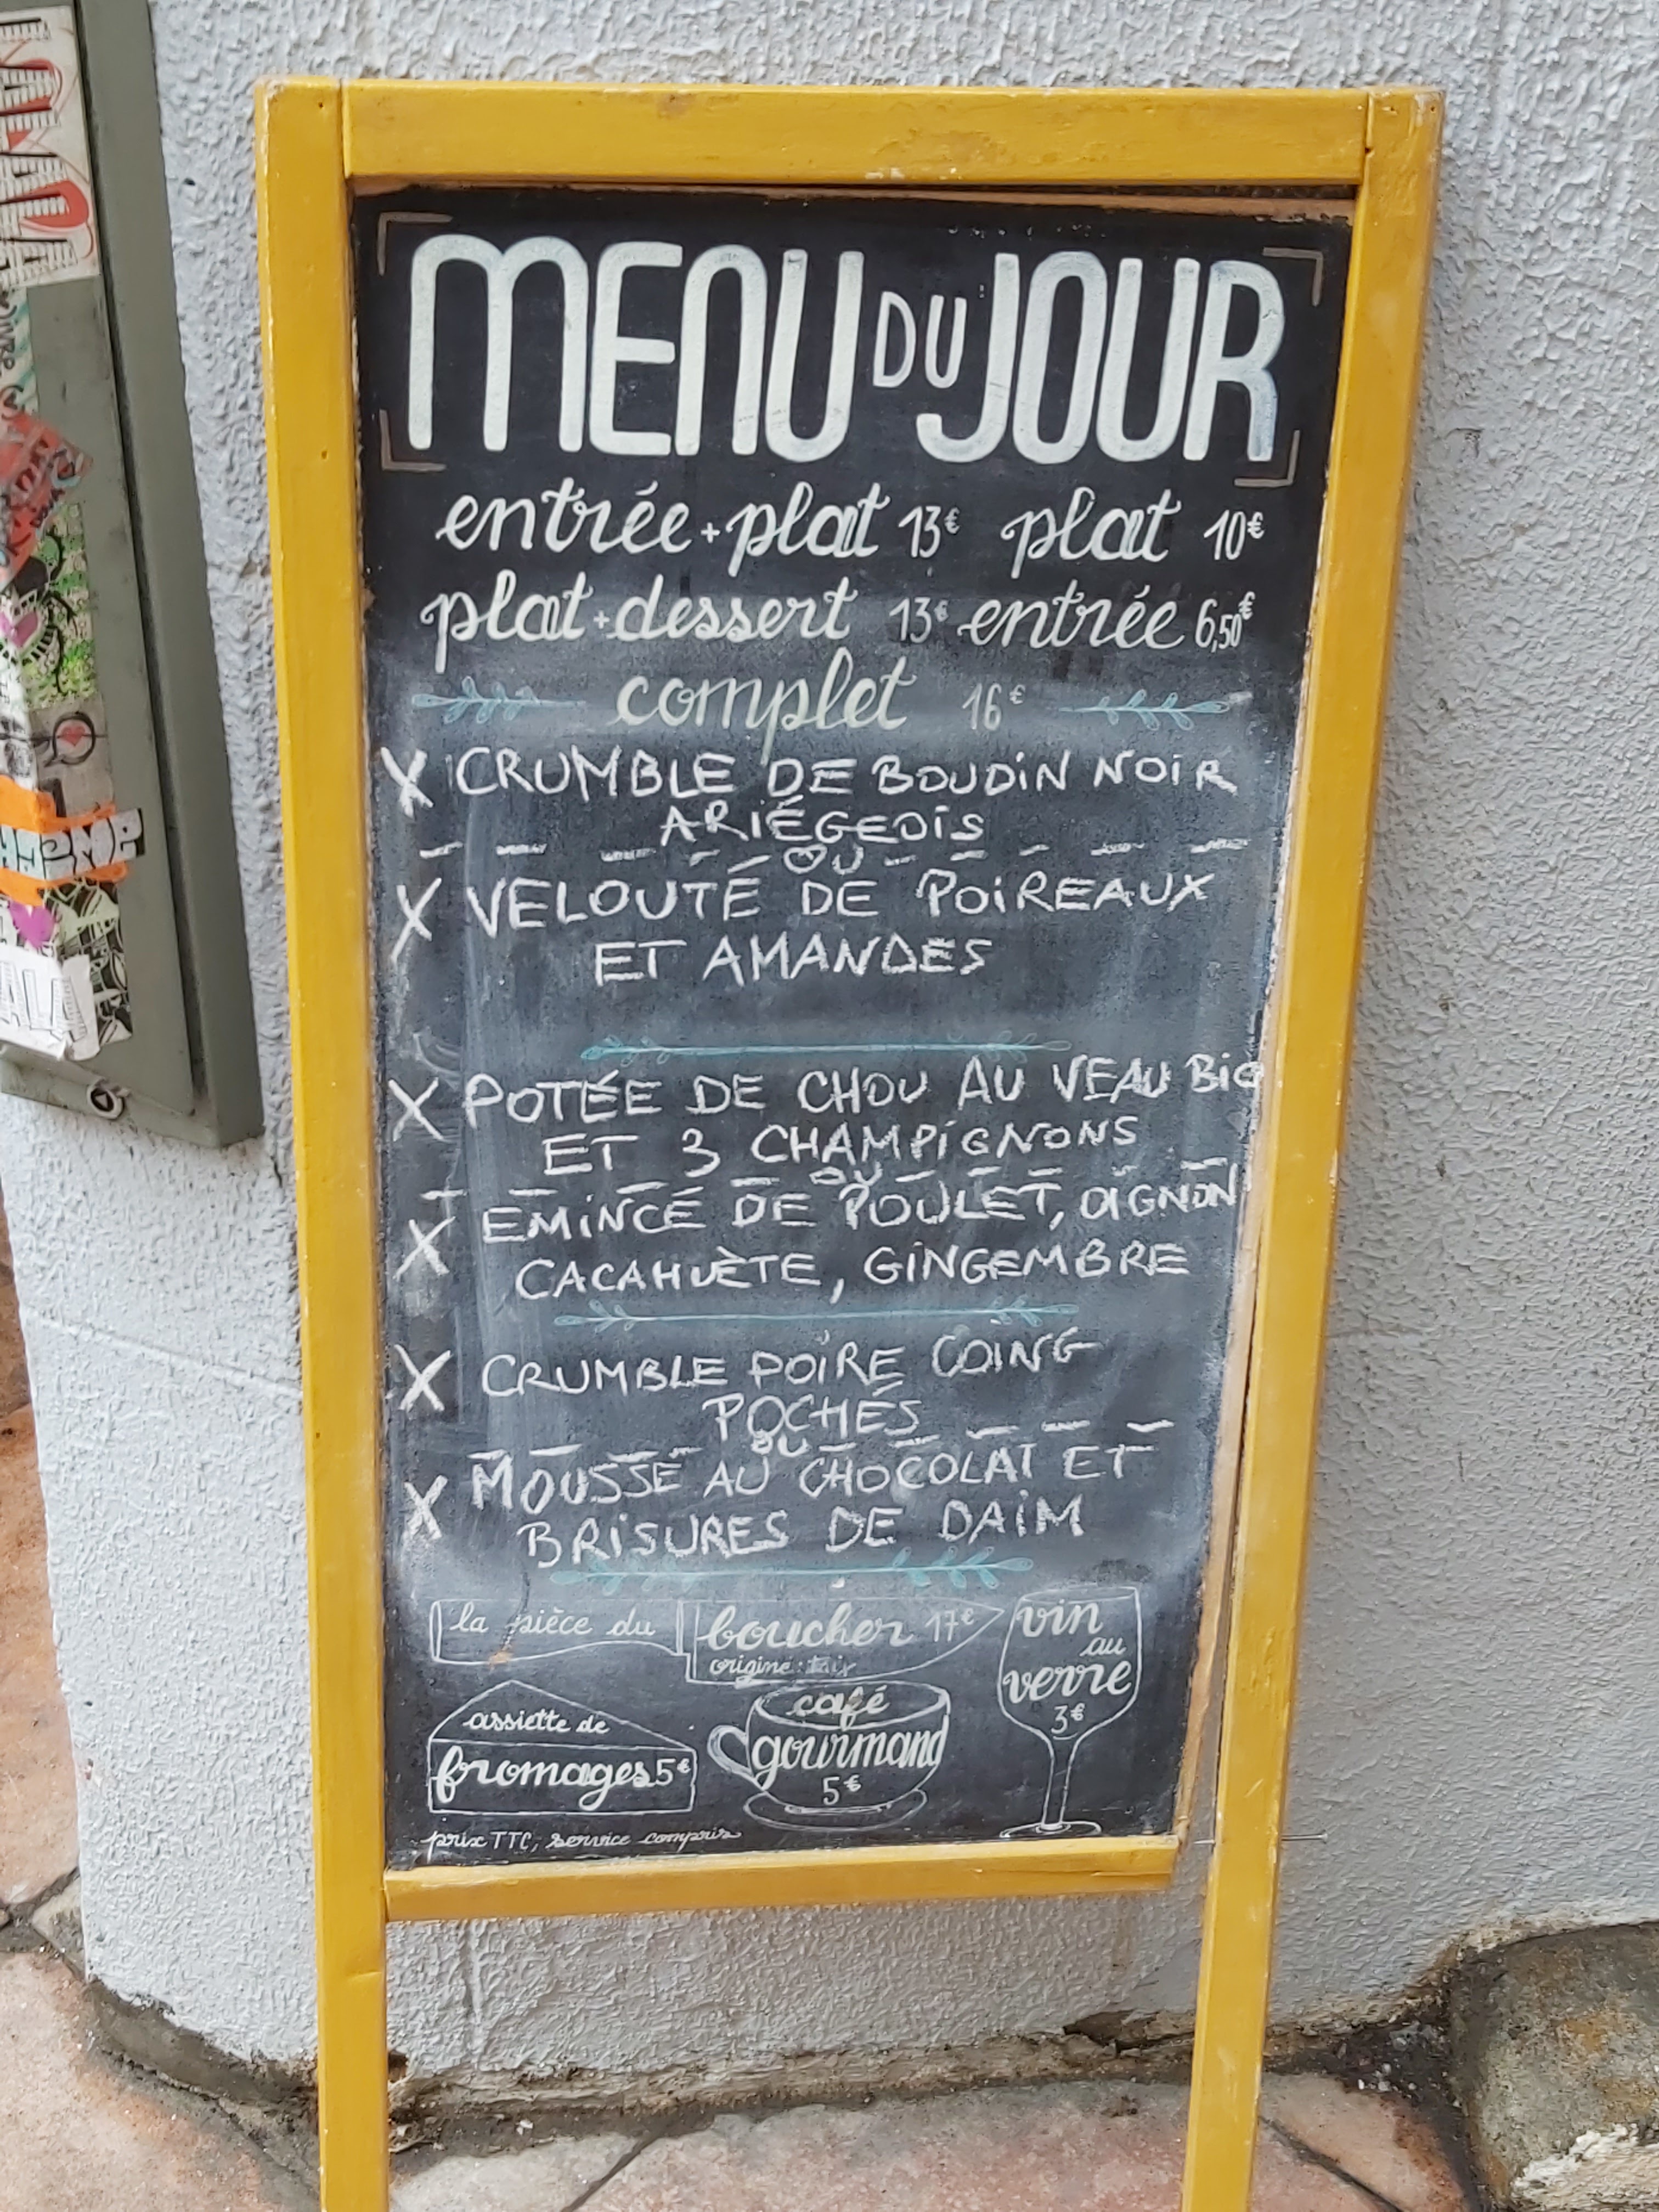 MENU DU JOUR
entrée + plat 13€ plat 10€
plat + dessert 13€ entrée 6,50€
complet 16€
X CRUMBLE DE BOUDIN NOIR
ARIÉGEOIS
OU
X VELOUTÉ DE POIREAUX
ET AMANDES
X POTÉE DE CHOU AU VEAU BIO
ET 3 CHAMPIGNONS
OU
X EMINCÉ DE POULET, OIGNON
CACAHUÈTE, GINGEMBRE
X CRUMBLE POIRE COING
POCHÉS
OU
X MOUSSE AU CHOCOLAT ET
BRISURES DE DAIM
la pièce du boucher 17€
origine:
vin
au
verre
3€
assiette de
fromages 5€
café
gourmand
5€
prix TTC, service compris